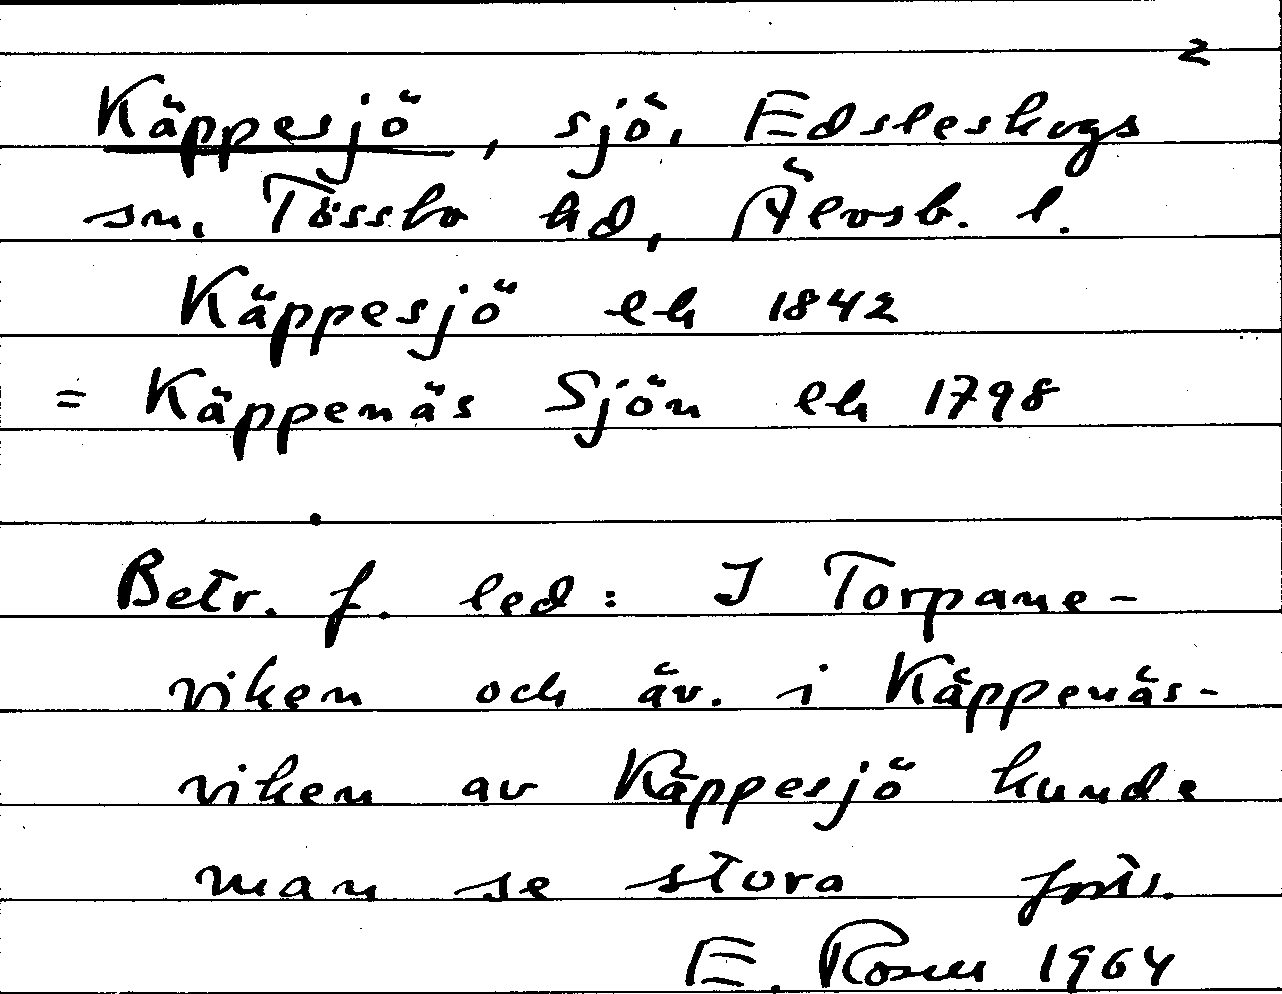 2
Käppesjö, sjö, Edsleskogs
sn, Tössbo hd, Älvsb. l.
Käppesjö ek 1842
= Käppenäs Sjön ek 1798
Betr. f. led: I Torpane-
viken och äv. i Käppenäs-
viken av Käppesjö kunde
man se stora forts.
E. Rosell 1964